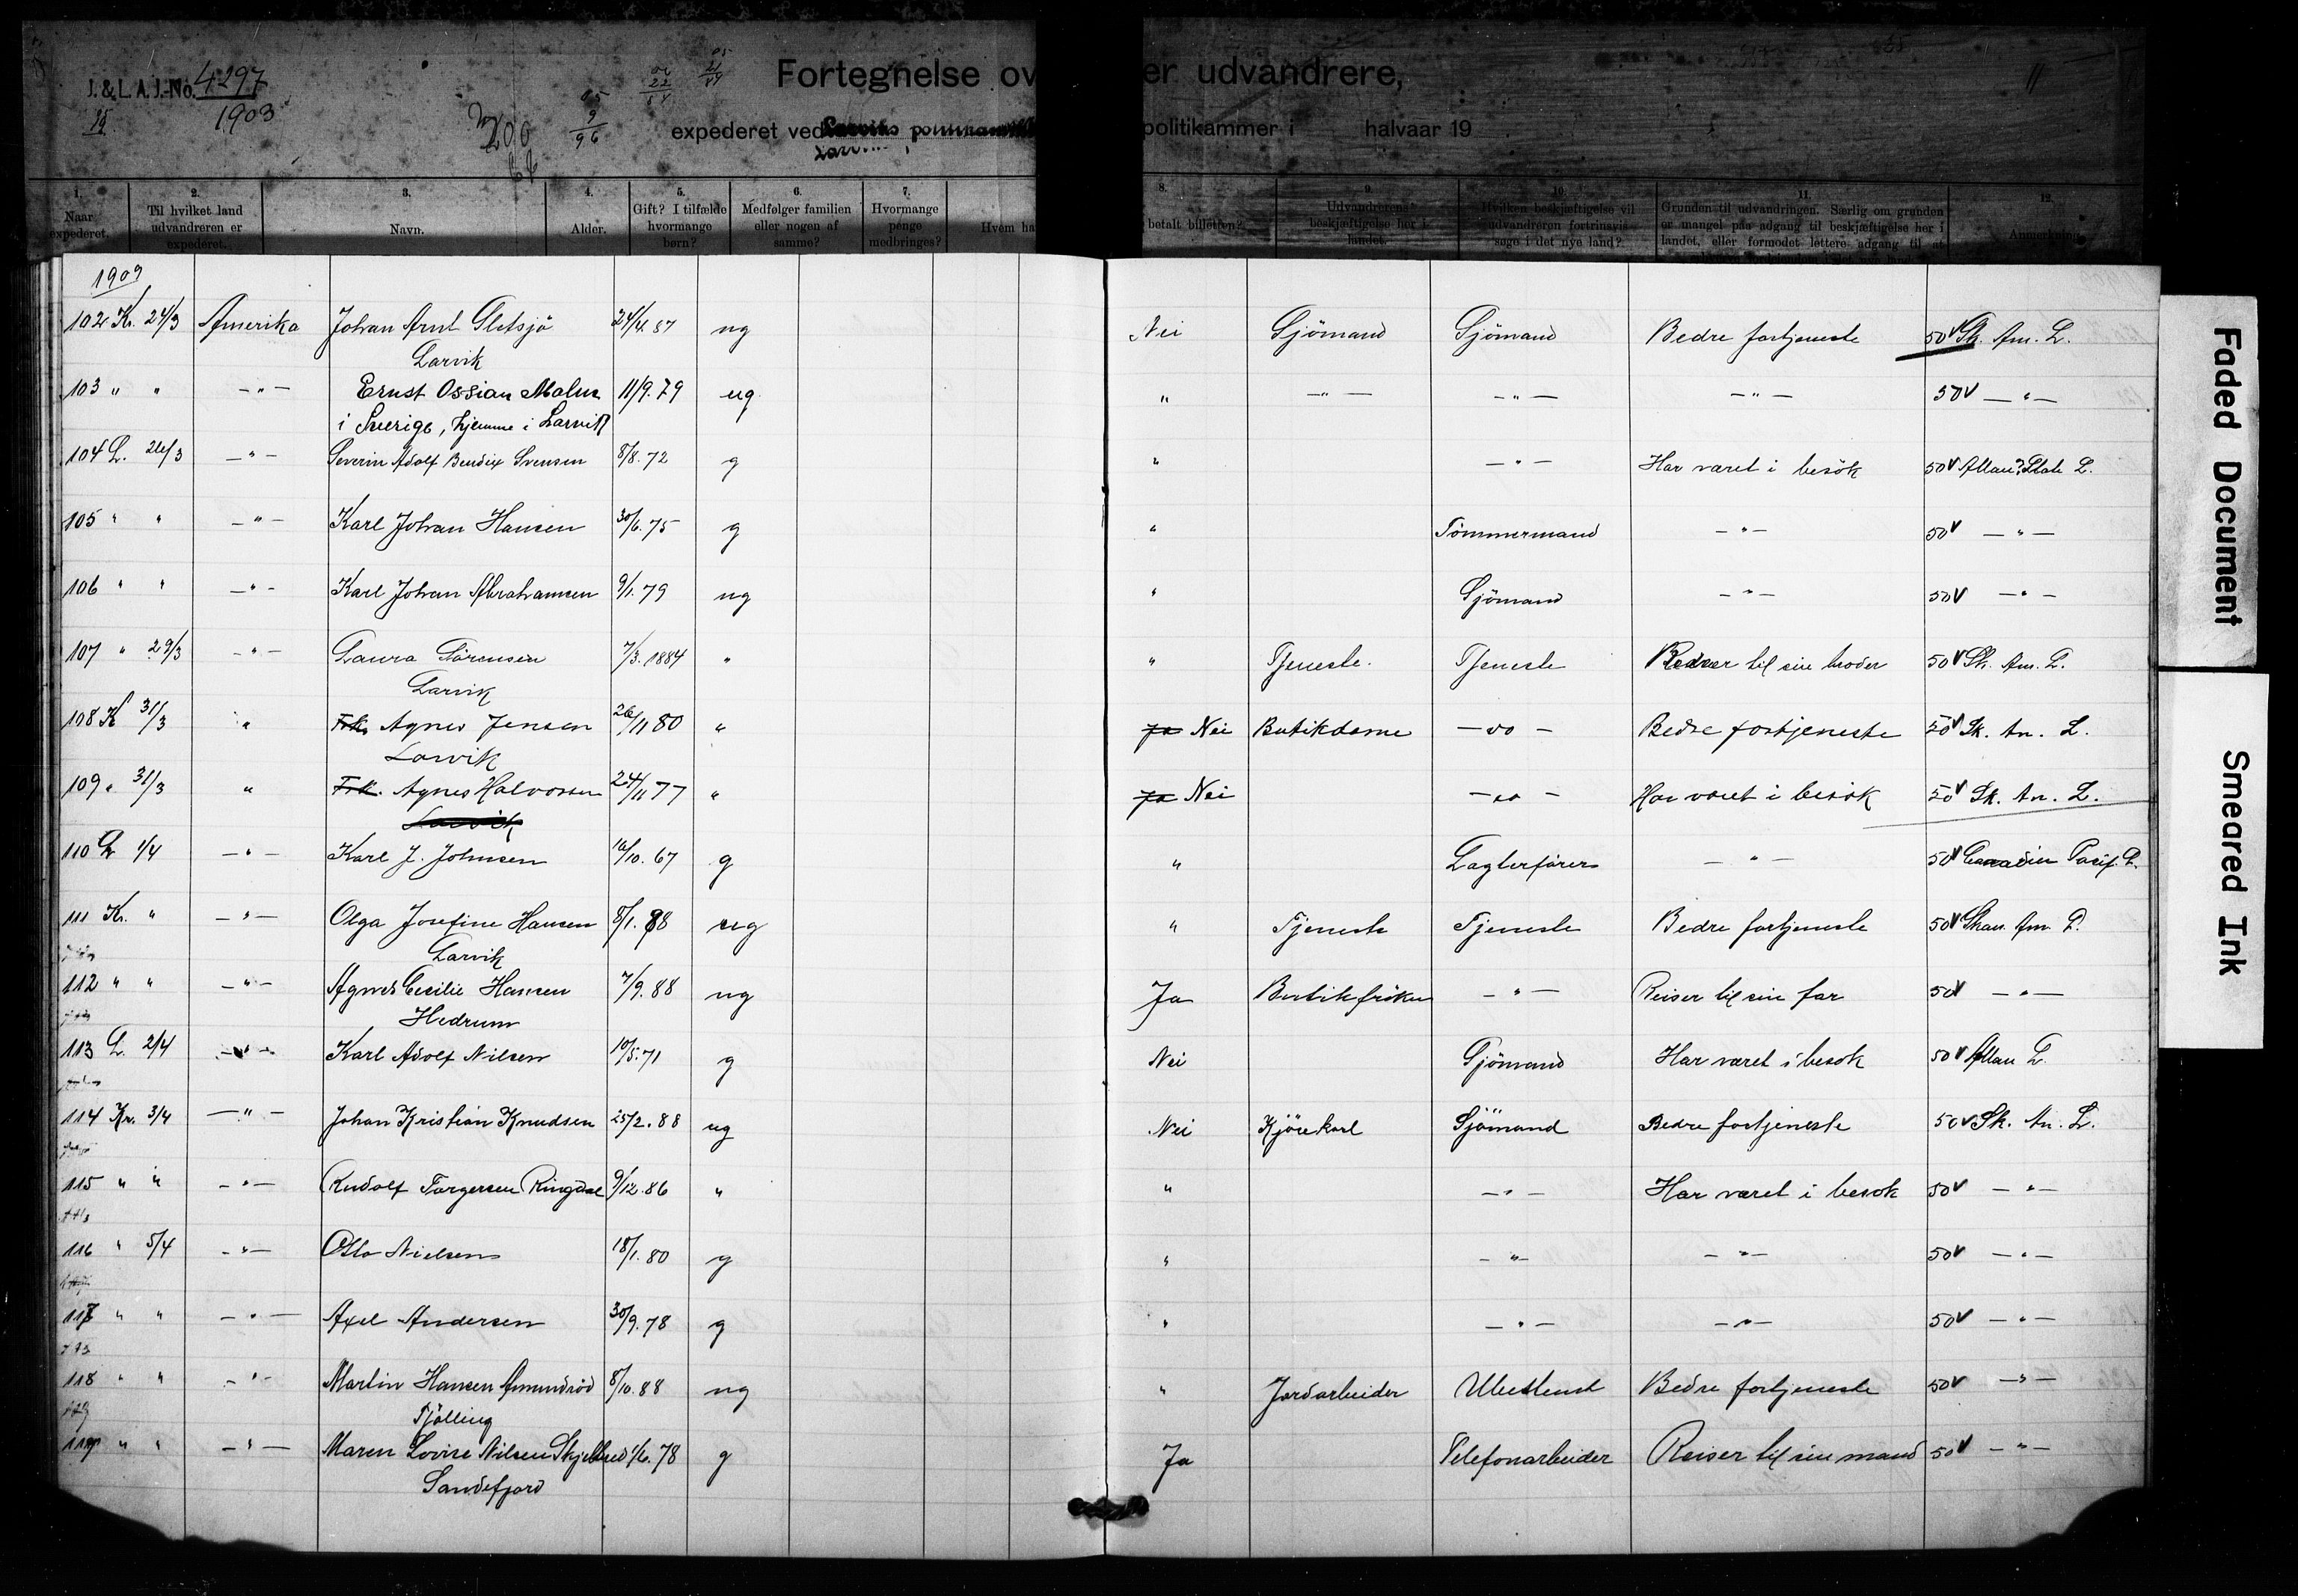 J. & L. A. J.-No. 4297
1903
Fortegnelse over udvandrere,
expederet ved Larviks politikammer i halvaar 19
1. Naar expederet.
2. Til hvilket land udvandreren er expederet.
3. Navn.
4. Alder.
5. Gift? I tilfælde hvormange børn?
6. Medfølger familien eller nogen af samme?
7. Hvormange penge medbringes?
8. Hvem ha betalt billetten?
9. Udvandrerens beskjæftigelse her i landet.
10. Hvilken beskjæftigelse vil udvandreren fortrinsvis søge i det nye land?
11. Grunden til udvandringen. Særlig om grunden er mangel paa adgang til beskjæftigelse her i landet, eller formodet lettere adgang til at
12. Anmerkning
1909
102 Kr. 24/3 Amerika Johan Arnt Gletsjø 24/4 87 ug Nei Sjömand Sjömand Bedre fortjeneste 50 Sk. Am. L.
Larvik
103 " " - " - Ernst Ossian Malm 11/9.79 ug " - " - - " - - " - 50 - " -
i Sverige, hjemme i Larvik
104 L. 26/3 - " - Severin Adolf Bendix Svensen 8/8.72 g " - " - Har været i besök 50 Allan State L.
105 " " - " - Karl Johan Hansen 30/6.75 g " Tömmermand - " - 50 - " -
106 " " - " - Karl Johan Abrahamsen 9/1.79 ug " Sjömand - " - 50 - " -
107 " 29/3 - " - Laura Sörensen 7/3.1884 " " Tjeneste. Tjeneste Reiser til sin broder 50 Sk. Am. L.
Larvik
108 K 31/3 " Frk. Agnes Jensen 26/11 80 " ja Nei Butikdame - " - Bedre fortjeneste 50 Sk. Am. L.
Larvik
109 " 31/3 " Frk. Agnes Halvorsen 24/11 77 " ja Nei - " - Har været i besök 50 Sk. Am. L.
Larvik
110 L 1/4 - " - Karl J. Johnsen 16/10.67 g " Lagterförer - " - 50 Canadien Pacif. L.
111 Kr. " - " - Olga Josefine Hansen 8/1.88 ug " Tjeneste Tjeneste Bedre fortjeneste 50 Skan. Am. L.
Larvik
112 " " - " - Agnes Cecilie Hansen 7/9.88 ug Ja Butikfröken - " - Reiser til sin far 50 - " -
Hedrum
113 L. 2/4 - " - Karl Adolf Nilsen 10/5.71 g Nei Sjömand Har været i besök 50 Allan L.
114 Kr. 3/4 - " - Johan Kristian Knudsen 25/2.88 ug Nei Kjörekarl Sjömand Bedre fortjeneste 50 Sk. Am. L.
115 " " - " - Rudolf Torgersen Ringdal 9/12.86 " " - " - Har været i besok 50 - " -
116 " 5/4 - " - Otto Nielsen 18/1.80 g " - " - - " - 50 - " -
117 " " - " - Axel Andersen 30/9.78 g " - " - - " - 50 - " -
118 " " - " - Martin Hansen Amundröd 8/10.88 ug " Jordarbeider Ubestemt Bedre fortjeneste 50 - " -
Tjölling
119 " " - " - Maren Lovise Nilsen Skjelbred 1/6.78 g Ja Telefonarbeider Reiser til sin mand 50 - " -
Sandefjord
Faded Document
Smeared Ink